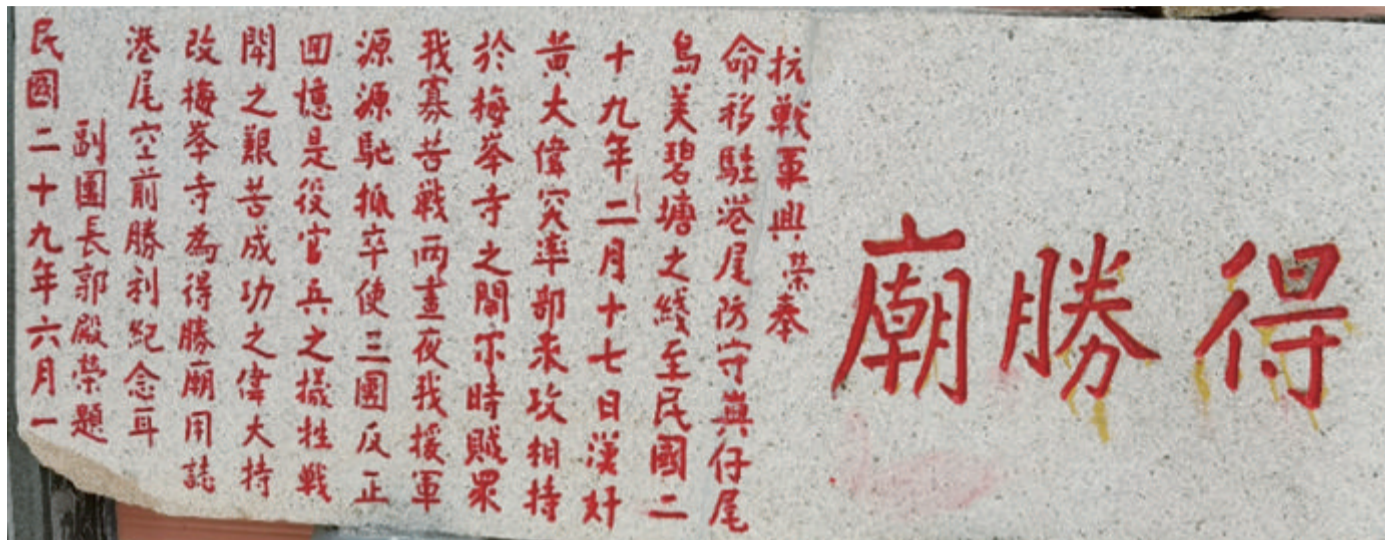 得勝廟
抗戰軍興榮奉
命移駐港尾防守與仔尾
島美碧塘之綫至民國二
十九年二月十七日漢奸
黃大偉突率部来攻相持
於梅峯寺之間尔時賊眾
我寡苦戰两晝夜我援軍
源源馳抵卒使三團反正
回憶是役官兵之犠牲戰
鬥之艱苦成功之偉大特
改梅峯寺為得勝廟用誌
港尾空前勝利紀念耳
副團長郭殿榮題
民國二十九年六月一